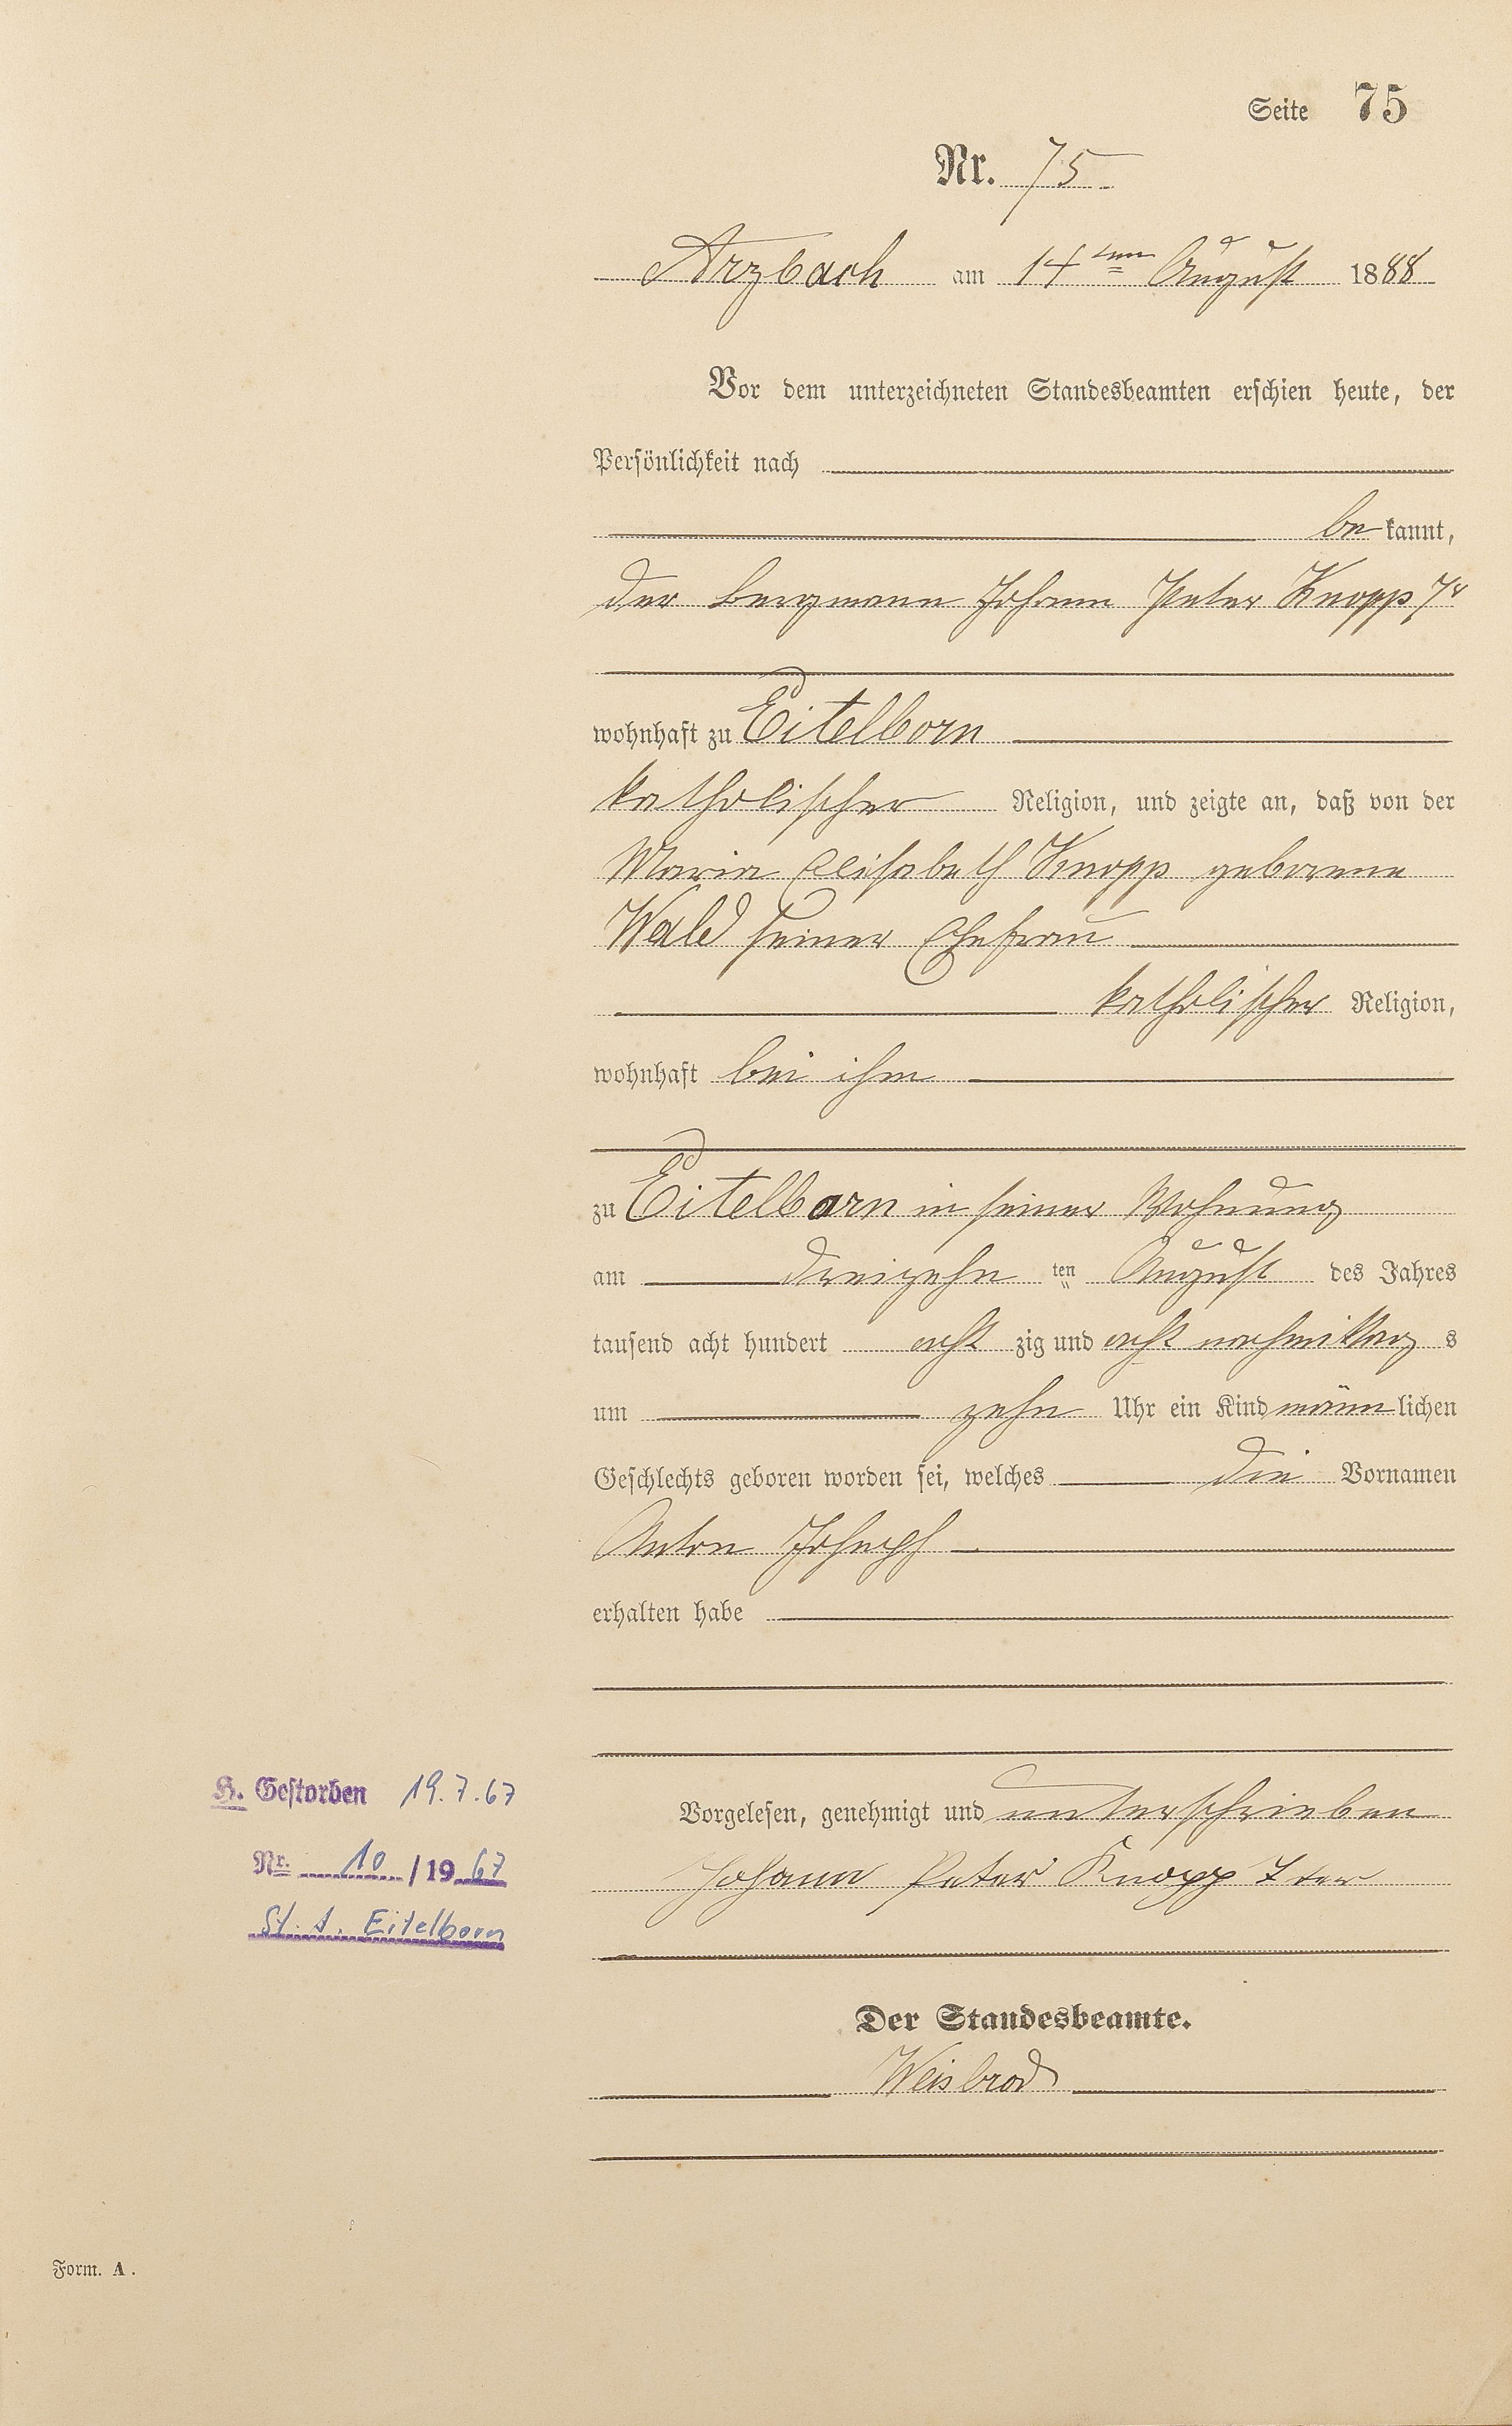 Seite 75
Nr. 75
Arzbach am 14ten August 1888
Vor dem unterzeichneten Standesbeamten erschien heute, der
Persönlichkeit nach
bekannt,
der Bergmann Johann Peter Knopp 7r
wohnhaft zu Eitelborn
katholischer Religion, und zeigte an, daß von der
Maria Elisabeth Knopp geborene
Wald seiner Ehefrau
katholischer Religion,
wohnhaft bei ihm
zu Eitelborn in seiner Wohnung
am dreizehn ten August des Jahres
tausend acht hundert acht zig und acht nachmittag s
um zehn Uhr ein Kind männlichen
Geschlechts geboren worden sei, welches die Vornamen
Anton Joseph
erhalten habe
Vorgelesen, genehmigt und unterschrieben
Johann Peter Knopp 7ter
Der Standesbeamte.
Weisbrod
H. Gestorben 19.7.67
Nr. 10/1967
St. A. Eitelborn
Form. A.